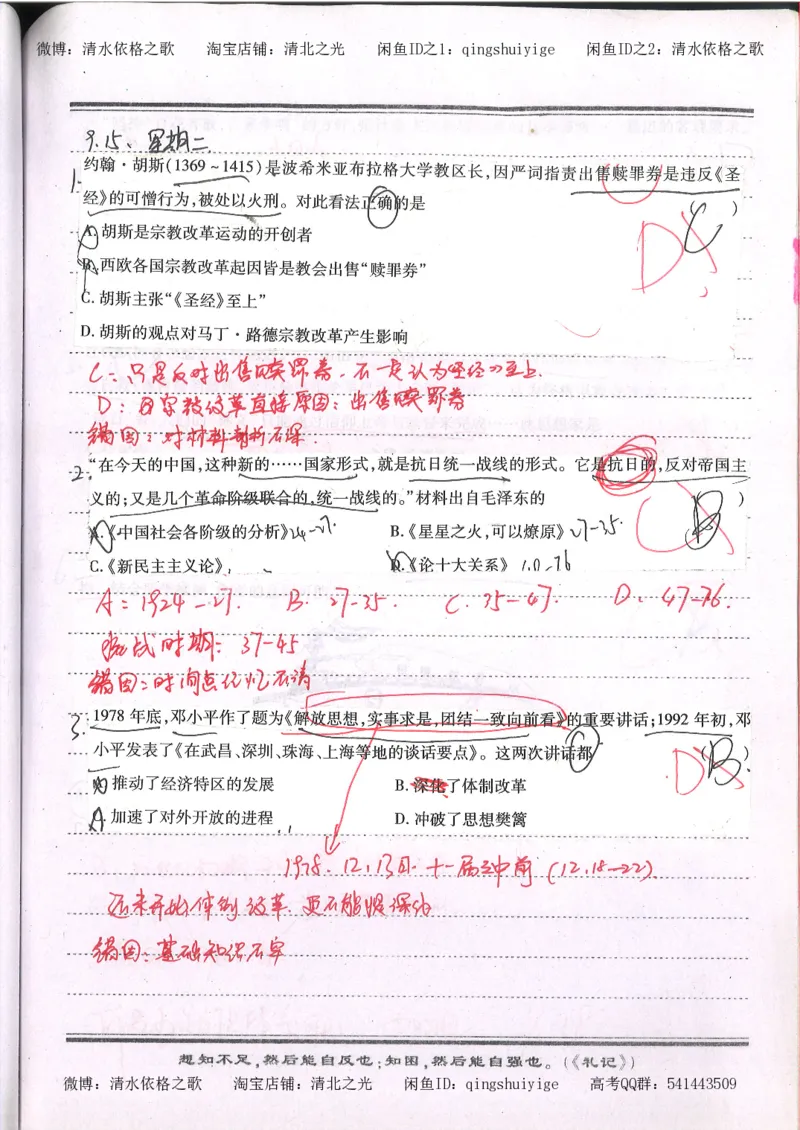 微博：清水依格之歌 淘宝店铺：清北之光 闲鱼ID之1：qingshuiyige 闲鱼ID之2：清水依格之歌
9.15、星期二
1. 约翰·胡斯(1369～1415)是波希米亚布拉格大学教区长,因严词指责出售赎罪券是违反《圣
经》的可憎行为,被处以火刑。对此看法正确的是 ( C )
D
A. 胡斯是宗教改革运动的开创者
B. 西欧各国宗教改革起因皆是教会出售“赎罪券”
C. 胡斯主张“《圣经》至上”
D. 胡斯的观点对马丁·路德宗教改革产生影响
C：只是反对出售赎罪券，不一定认为圣经至上.
D：宗教改革直接原因：出售赎罪券
错因：对材料剖析不深
2. “在今天的中国,这种新的……国家形式,就是抗日统一战线的形式。它是抗日的,反对帝国主
义的;又是几个革命阶级联合的,统一战线的。”材料出自毛泽东的 ( B )
C
A.《中国社会各阶级的分析》24-27. B.《星星之火,可以燎原》27-35.
C.《新民主主义论》 D.《论十大关系》
A：1924-27. B. 27-35. C. 35-47. D. 47-76.
抗战时期：37-45
错因：时间点记忆不清
3. 1978 年底,邓小平作了题为《解放思想,实事求是,团结一致向前看》的重要讲话;1992 年初,邓
小平发表了《在武昌、深圳、珠海、上海等地的谈话要点》。这两次讲话都 ( B )
D
A. 推动了经济特区的发展 B. 深化了体制改革
加速了对外开放的进程 D. 冲破了思想樊篱
1978.12.13日.十一届三中前(12.18-22)
还未开始体制改革.更不能慢深化
错因：基础知识不牢
想知不足,然后能自反也;知困,然后能自强也。(《礼记》)
微博：清水依格之歌 淘宝店铺：清北之光 闲鱼ID：qingshuiyige 高考QQ群：541443509